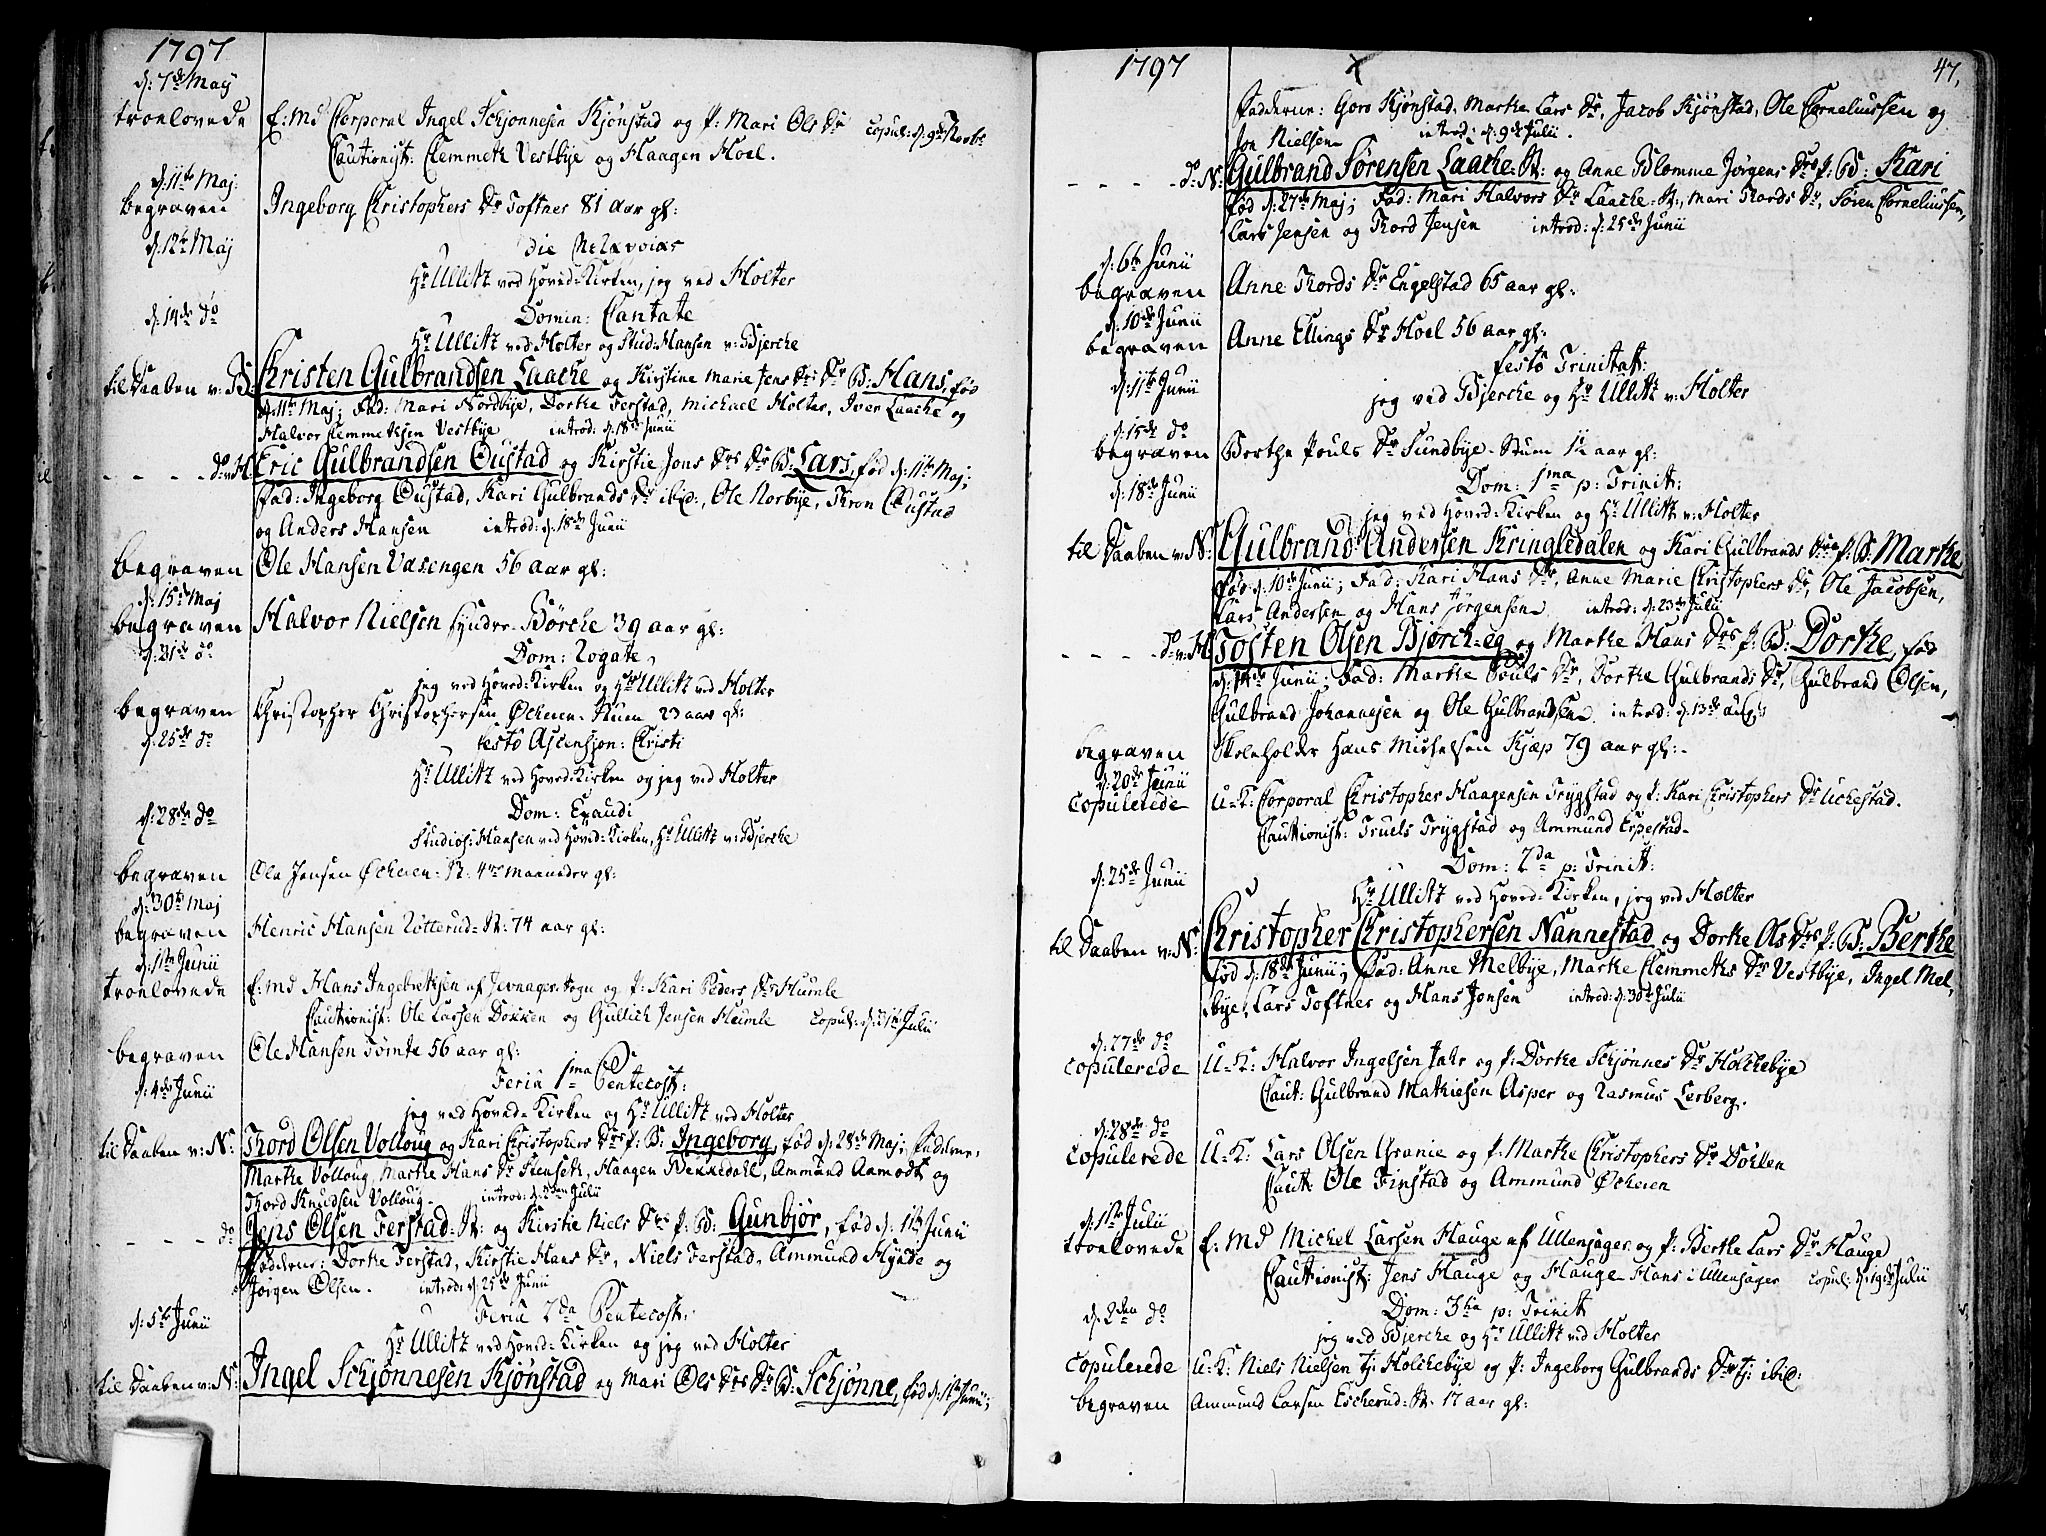 1797
d: 7de Maij
troelovede E: Md Corporal Ingel Schjønnesen Kjønstad og P: Mari Ols Dr copul: d: 9de Novbr
Cautionist: Clemmeth Vestbye og Haagen Hoel.
d: 11te Maj:
begraven Ingeborg Christophers Dr Toftner 81 aar gl:
d: 12te Maj die
Hr Ullitz ved Hoved-Kirken, jeg ved Holter
d: 14de do Domin: Cantate
Hr Ullitz ved Holter og Stud: Hansen v: Bjerche
til Daaben v: B: Christen Gulbrandsen Laache og Kirstine Marie Jens Drs Dr B: Hans, fød
d: 11te Maj; Fad: Mari Nordbye, Dorthe Ferstad, Michael Holter, Iver Laache og
Halvor Clemmethsen Vestbye introd: d: 18de Junii
- - - - do v: H: Eric Gulbrandsen Oustad og Kirstie Jons Drs Dr B: Lars, fød d: 11te Maj;
Fad: Ingeborg Oustad, Kari Gulbrands Dr ibid:, Ole Norbye, Thron Oustad
og Anders Hansen introd: d: 18de Junii
begraven Ole Hansen Vaasengen 56 aar gl:
d: 15de Maj
begraven Halvor Nielsen syndre-Børche 39 aar gl:
d: 21de do Dom: Rogate
jeg ved Hoved-Kirken og Hr Ullitz ved Holter
begraven Christopher Christophersen Ocheren-Huen 23 aar gl:
d: 25de do Festo Ascension: Christi
Hr Ullitz ved Hoved-Kirken og jeg ved Holter
d: 28de do Dom: Exaudi
Studios: Hansen ved Hoved-Kirken, Hr Ullitz v: Bjerche
begraven Ole Jensen Ocheren-N: 4re maaneder gl:
d: 30te Maj
begraven Henric Hansen Rotterud-N: 74 aar gl:
d: 1te Junii
troelovede E: Md Hans Ingebrethsen af Jevnager Sogn og P: Kari Peders Dr Humle
Cautionist: Ole Larsen Dokken og Gullich Jensen Humle copul: d: 21de Julii
begraven Ole Hansen Tømte 56 aar gl:
d: 4de Junii Feria 1ma Pentecost:
jeg ved Hoved-Kirken og Hr Ullitz ved Holter
til Daaben v: N: Thord Olsen Volloug og Kari Christophers Drs P: B: Ingeborg, fød d: 28de Maj; Fadderne,
Marthe Volloug, Marthe Hans Dr Stenseth, Haagen Bekkedahl, Ammund Aamodt og
Thord Knudsen Volloug. introd: d: 2den Julii
- - - - do Jens Olsen Ferstad-N: og Kirstie Niels Drs P: B: Gunbjør, fød d: 1te Junii
Fadderne: Dorthe Ferstad, Kirstie Hans Dr, Niels Ferstad, Ammund Hynde og
Jørgen Olsen. introd: d: 25de Junii
d: 5te Junii Feria 2da Pentecost:
Hr Ullitz ved Hoved-Kirken og jeg ved Holter
til Daaben v: N: Ingel Schjønnesen Kjønstad og Mari Ols Drs Dr B: Schjønne, fød d: 1te Junii;
1797 47.
Fadderne: Goro Kjønstad, Marthe Lars Dr, Jacob Kjønstad, Ole Corneliussen og
Jon Nielsen introd: d: 9de Julii.
- - - - do N: Gulbrand Sørensen Laache-N: og Anne Blomme Jørgens Drs P: B: Kari
fød d: 27de Maj; Fad: Mari Halvors Dr Laache-N:, Mari Thords Dr, Søren Corneliussen,
Lars Jensen og Thord Jensen introd: d: 25de Junii
d: 6te Junii
begraven Anne Thords Dr Engelstad 65 aar gl:
d: 10de Junii
begraven Anne Ellings Dr Hoel 56 aar gl:
d: 11te Junii Festo Trinitat:
jeg ved Bjerche og Hr Ullitz v: Holter
d: 15de do
begraven Berthe Pouls Dr Sundbye-Stuen 1½ aar gl:
d: 18de Junii Dom: 1ma p: Trinit:
jeg ved Hoved-Kirken og Hr Ullitz v: Holter
til Daaben v: N: Gulbrand Andersen Kringledalen og Kari Gulbrands Drs P: B: Marthe
fød d: 10de Junii; Fad: Kari Hans Dr, Anne Marie Christophers Dr, Ole Jacobsen,
Lars Andersen og Hans Jørgensen introd: d: 23de Julii
- - - - do v: H: Tosten Olsen Bjerch-eg og Marthe Hans Drs P: B: Dorthe, fød
d: 14de Junii; Fad: Marthe Pouls Dr, Dorthe Gulbrands Dr, Gulbrand Olsen,
Gulbrand Johannesen og Ole Gulbrandsen. introd: d: 13de Aug:
begraven Skoleholder Hans Michelsen Kjæp 79 aar gl:
d: 20de Junii
copulerede U-K: Corporal Christopher Haagensen Trygstad og P: Kari Christophers Dr Uchestad.
Cautionist: Truels Trygstad og Ammund Erpestad-
d: 25de Junii Dom: 2da p: Trinit:
Hr Ullitz ved Hoved-Kirken, jeg ved Holter
til Daaben v: N: Christopher Christophersen Nannestad og Dorthe Ols Drs P: B: Berthe
fød d: 18de Junii; Fad: Anne Melbye, Marthe Clemmeths Dr Vestbye, Ingel Mel,
bye, Lars Toftner og Hans Jonsen introd: d: 30te Julii
d: 27de do
copulerede U-K: Halvor Ingelsen Jahr og P: Dorthe Schjønnes Dr Holchebye
Caut: Gulbrand Mathiesen Asper og Rasmus Lerberg.
d: 28de do
copulerede U-K: Lars Olsen Granie og P: Marthe Christophers Dr Dohlen
Caut: Ole Finstad og Ammund Ocheren
d: 1te Julii
troelovede E: Md Michel Larsen Hauge af Ullensager og P: Berthe Lars Dr Hauge
Cautionist: Jens Hauge og Hauge-Hans i Ullensager copul: d: 19de Julii
d: 2den do Dom: 3tia p: Trinit:
jeg ved Bjerche og Hr Ullitz ved Holter
copulerede U-K: Niels Nielsen tj: Holchebye og P: Ingeborg Gulbrands Dr tj: ibid:
begraven Ammund Larsen Escherud-N: 17 aar gl: